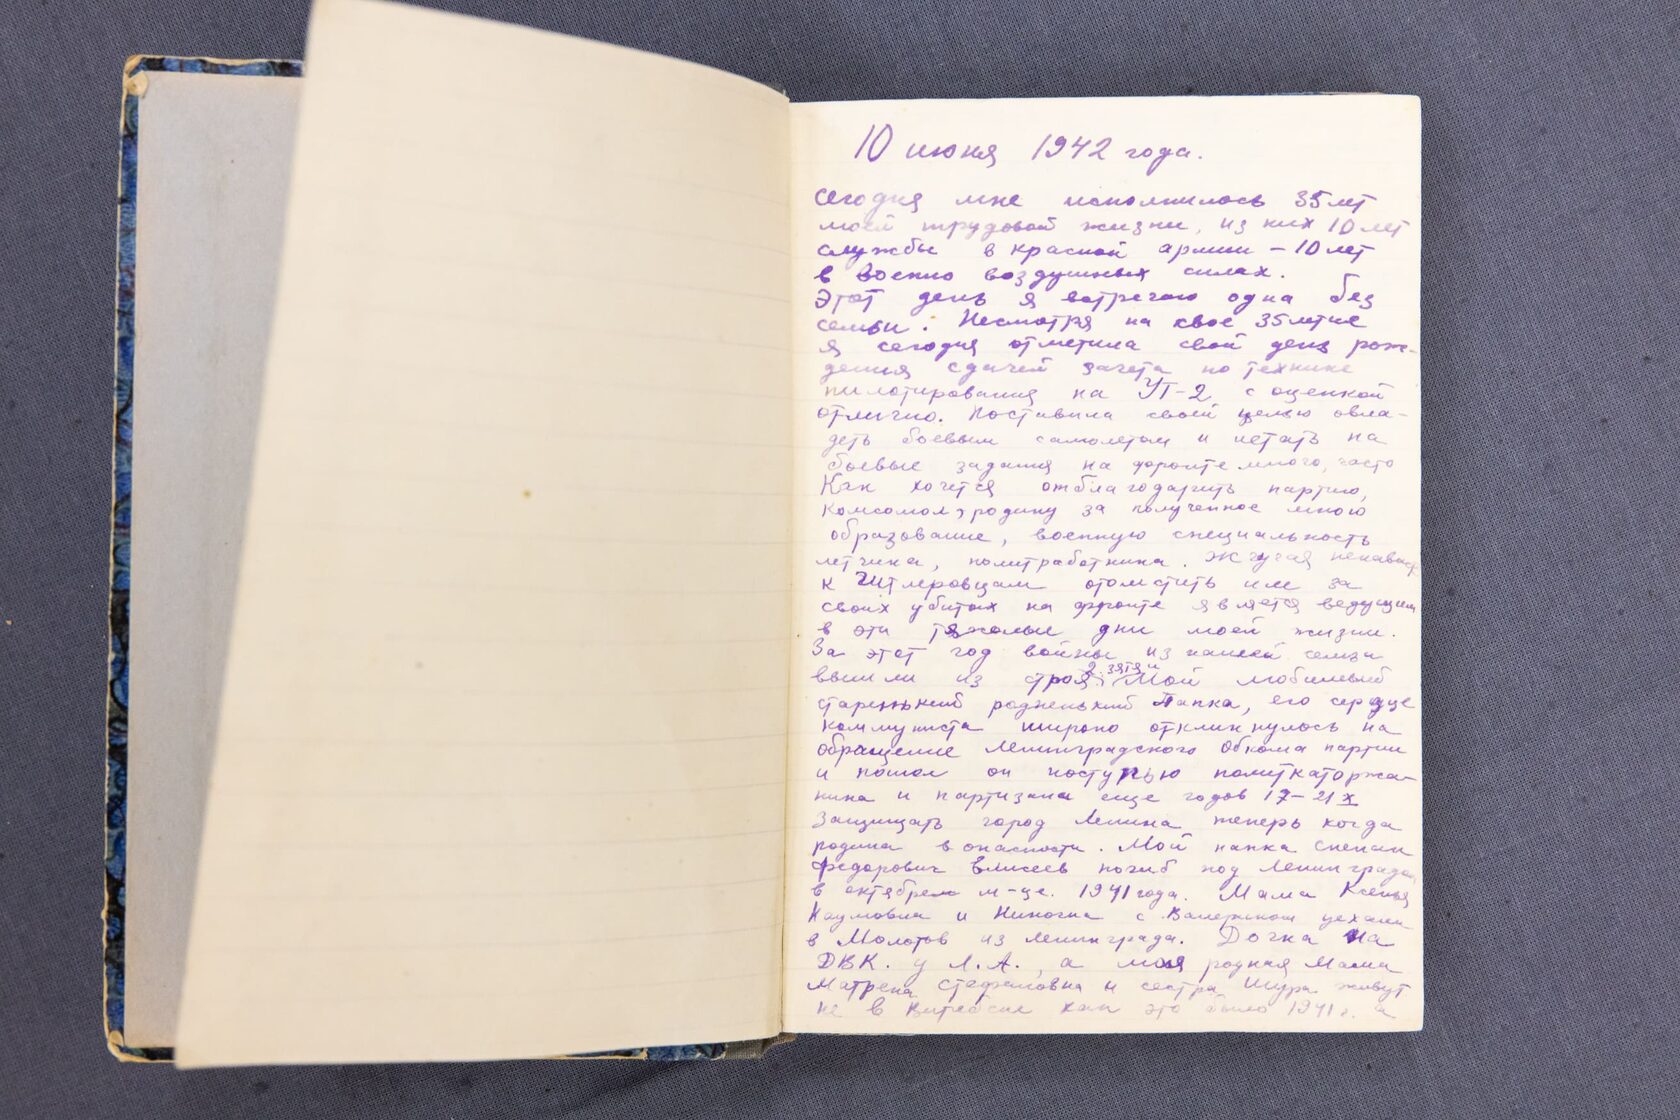 10 июня 1942 года.
Сегодня мне исполнилось 35 лет
моей трудовой жизни, из них 10 лет
службы в красной армии – 10 лет
в военно воздушных силах.
Этот день я встречаю одна без
семьи. Несмотря на свое 35летие
я сегодня отметила свой день рож-
дения сдачей зачета по технике
пилотирования на УТ-2 с оценкой
отлично. Поставила своей целью овла-
деть боевым самолетом и летать на
боевые задания на фронте много, часто
Как хочется отблагодарить партию,
комсомол, родину за полученное мною
образование, военную специальность
летчика, политработника. Жгучая ненависть
к Гитлеровцам отомстить им за
своих убитых на фронте является ведущим
в эти тяжелые дни моей жизни.
За этот год войны из нашей семьи
2 зятя и
вышли из строя Мой любимый
старенький родненький Папка, его сердце
коммуниста широко откликнулось на
обращение Ленинградского Обкома партии
и пошел он поступью политкаторжа-
нина и партизана еще годов 17–21 х
Защищать город Ленина теперь когда
родина в опасности. Мой папка Степан
Федорович Елисеев погиб под Ленинградом
в октябрем м-це. 1941 года. Мама Ксенья
Наумовна и Ниночка с Валериком уехали
в Молотов из Ленинграда. Дочка на
ДВК. у Л.А., а моя родная мама
Матрена Стефановна и сестра Шура живут
не в Витебске как это было 1941 г. а